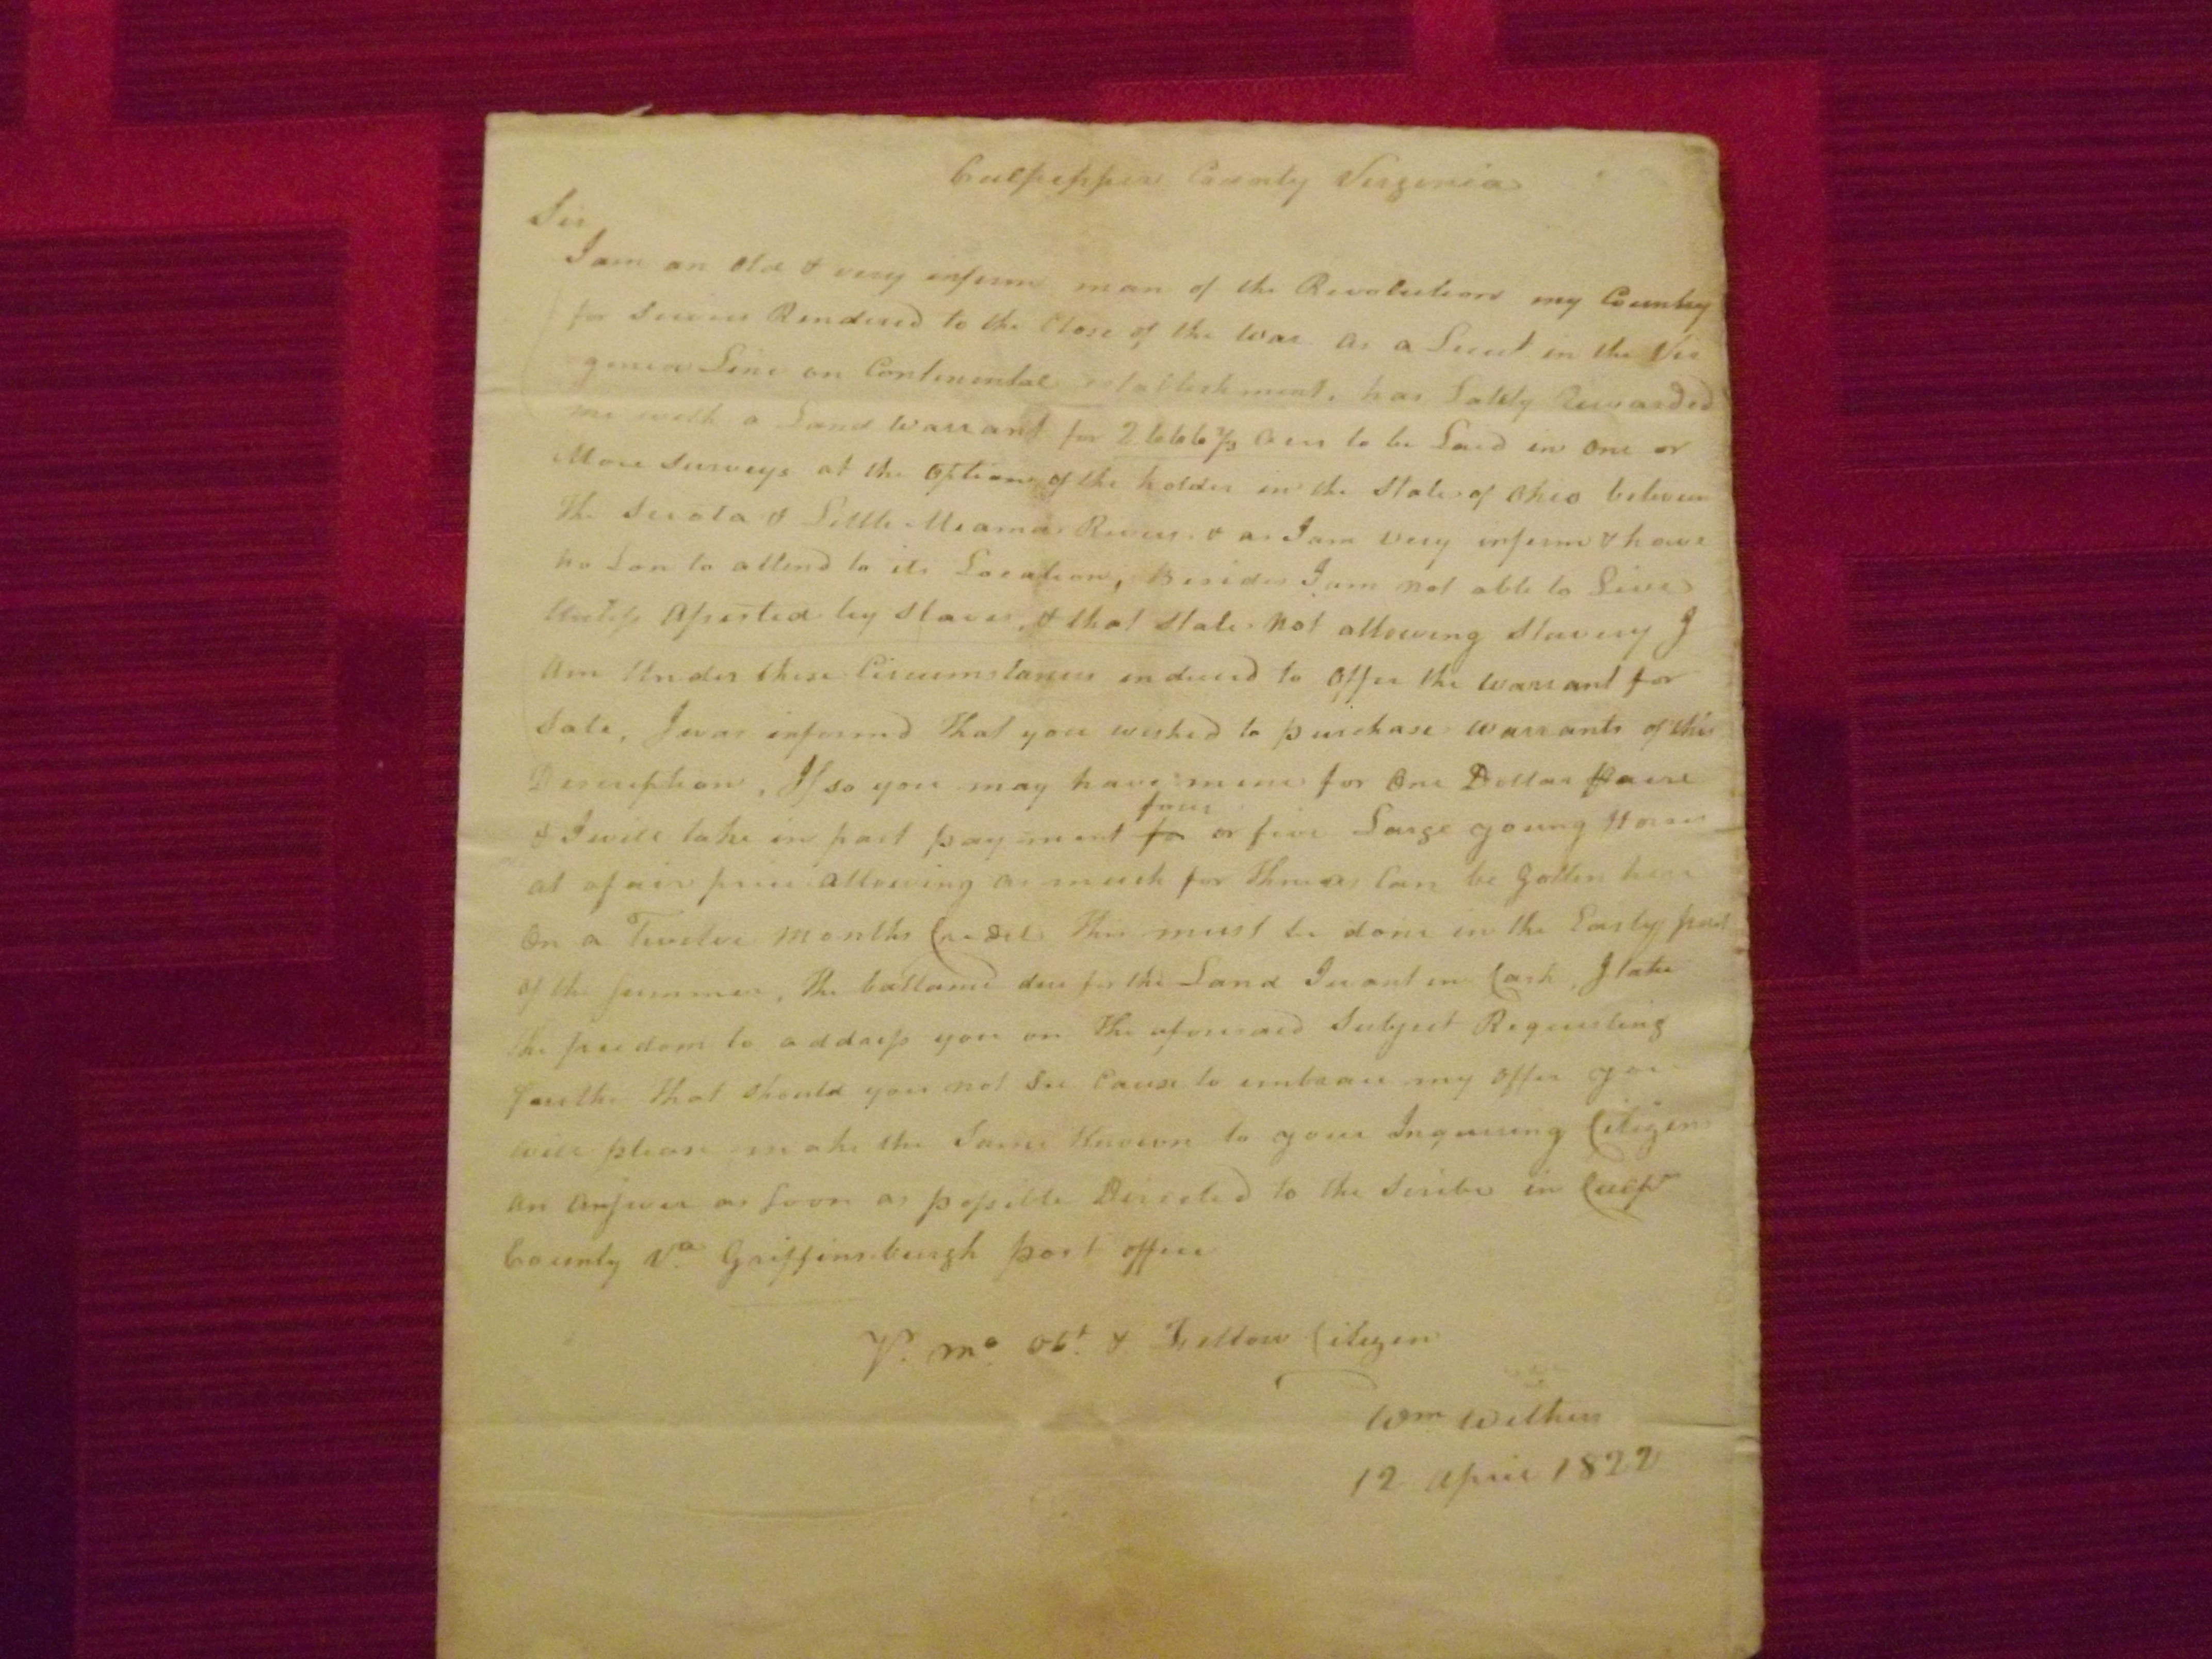 Culpepper County Virginia
Sir
I am an old & very infirm man of the Revolution my Country
for Services Rendered to the Close of the War as a Lieut in the Vir
ginia Line on Continental establishment, has Lately Rewarded
me with a Land Warrant for 2666 2/3 acres to be Laid in one or
More Surveys at the Option of the holder in the State of Ohio between
The Sciota & Little Miama Rivers & as I am very infirm & have
no Son to attend to its Location, Besides I am not able to Live
Unless Assisted by Slaves, & that State Not allowing Slavery I
Am Under these Circumstances induced to Offer the Warrant for
Sale, I was informed That you wished to purchase Warrants of this
Description, If so you may have mine for One Dollar acre
& I will take in part payment four or five Large young Horses
at a fair price allowing as much for Them as Can be Gotten here
On a Twelve Months Credit This must be done in the Early part
of the Summer, The ballance due for the Land I want in Cash, I take
the freedom to address you on The aforesaid Subject Requesting
further That Should you not See Cause to embrace my offer you
will please make the Same Known to your Inquiring Citizens
An Answer as Soon as possible Directed to the Scribe in Culpr
County Va. Griffinsburgh post office
Yr. mo. obt. & Fellow Citizen
Wm Withers
12 April 1822